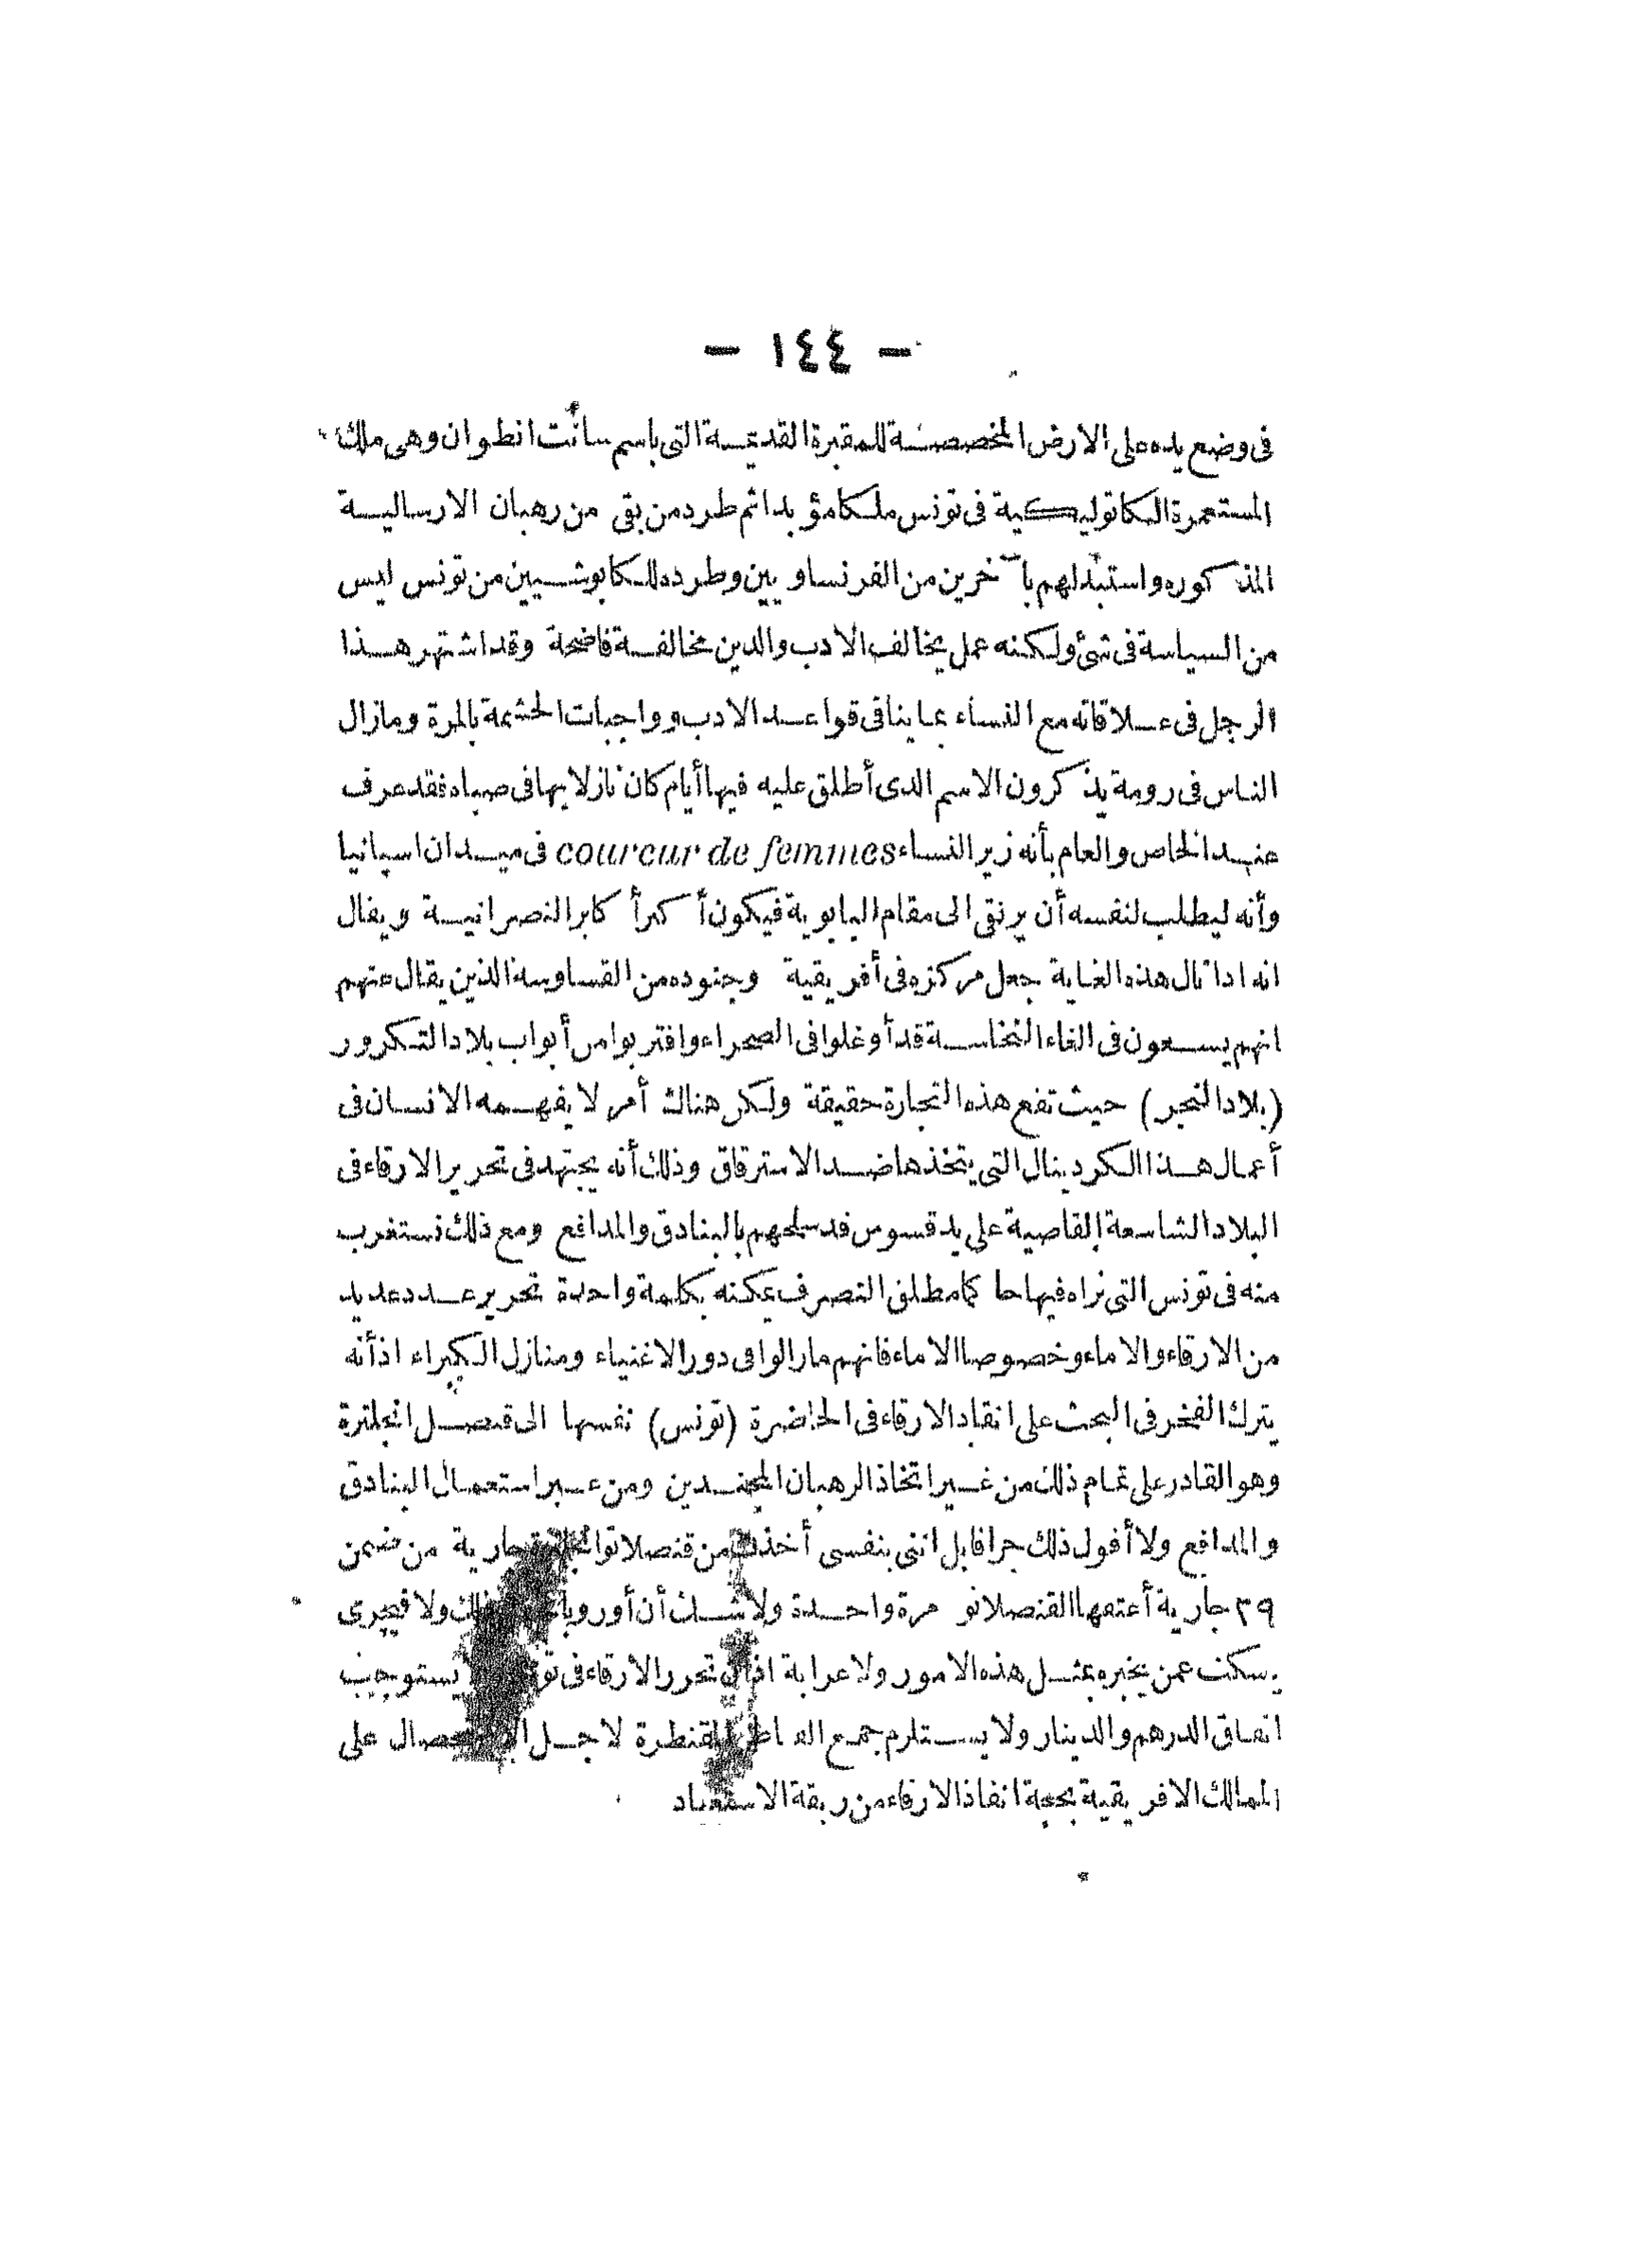 — ١٤٤ —
فى وضع يده على الارض المخصصة للمقبرة القديمة التى باسم سانت انطوان وهى ملك
المستعمرة الكاتوليكية فى تونس ملكا مؤبدا ثم طرد من بقى من رهبان الارسالية
المذكوره واستبدلهم بآخرين من الفرنساويين وطرده للكابوشيين من تونس ليس
من السياسة فى شئ ولكنه عمل يخالف الادب والدين مخالفة فاضحة وقد اشتهر هذا
الرجل فى علاقاته مع النساء بما ينافى قواعد الادب وواجبات الحشمة بالمرة ومازال
الناس فى رومة يذكرون الاسم الدى أطلق عليه فيها أيام كان نازلا بها فى صباه فقد عرف
عند الخاص والعام بأنه زير النساء coureur de femmes فى ميدان اسپانيا
وأنه ليطلب لنفسه أن يرتقى الى مقام البابوية فيكون أكبر أكابر النصرانية ويقال
انه ادا نال هذه الغاية جعل مركزه فى أفريقية وجنوده من القساوسة الذين يقال عنهم
انهم يسعون فى الغاء النخاسة قد أوغلوا فى الصحراء واقتربوا من أبواب بلاد التكرور
(بلاد النجر) حيث تقع هذه التجارة حقيقة ولكن هناك أمر لا يفهمه الانسان فى
أعمال هذا الكردينال التى يتخذها ضد الاسترقاق وذلك أنه يجتهد فى تحرير الارقاء فى
البلاد الشاسعة القاصية على يد قسوس قد سلحهم بالبنادق والمدافع ومع ذلك نستغرب
منه فى تونس التى نراه فيها حاكما مطلق التصرف يمكنه بكلمة واحدة تحرير عدد عديد
من الارقاء والاماء وخصوصا الاماء فانهم مازالوا فى دور الاغنياء ومنازل الكبراء اذ أنه
يترك الفخر فى البحث على انقاد الارقاء فى الحاضرة (تونس) نفسها الى قنصل انجلترة
وهو القادر على تمام ذلك من غير اتخاذ الرهبان المجندين ومن غير استعمال البنادق
والمدافع ولا أقول ذلك جزافا بل اننى بنفسى أخذت من قنصلاتو انجلترة جارية من ضمن
٢٩ جارية أعتقها القنصلاتو مرة واحدة ولا شك أن أوروبا ذلك ولا فيجرى
يسكت عمن يخبره بمثل هذه الامور ولا غرابة اذ أن تحرر الارقاء فى تونس لا يستوجب
انفاق الدرهم والدينار ولا يستلزم جمع القناطر المقنطرة لاجل على
الممالك الافريقية بحجة انقاذ الارقاء من ربقة الاستعباد